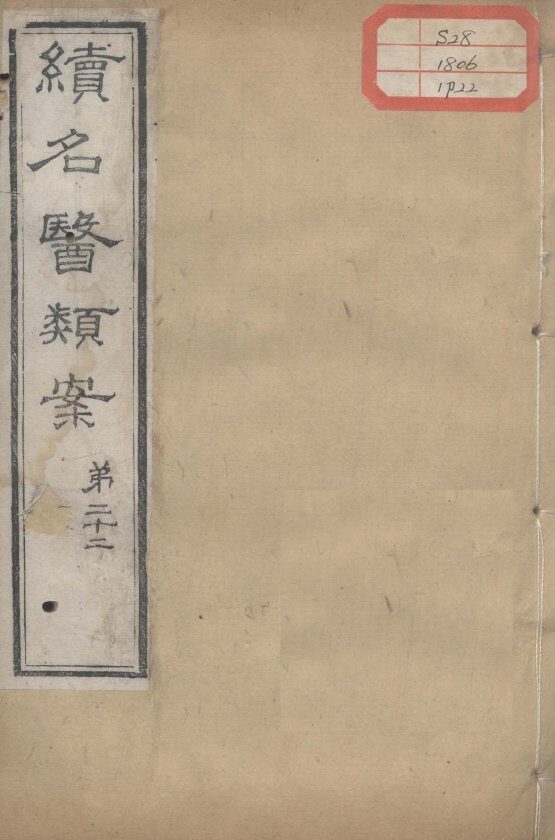 續名醫類案
弟二十二
S28
1806
1P22